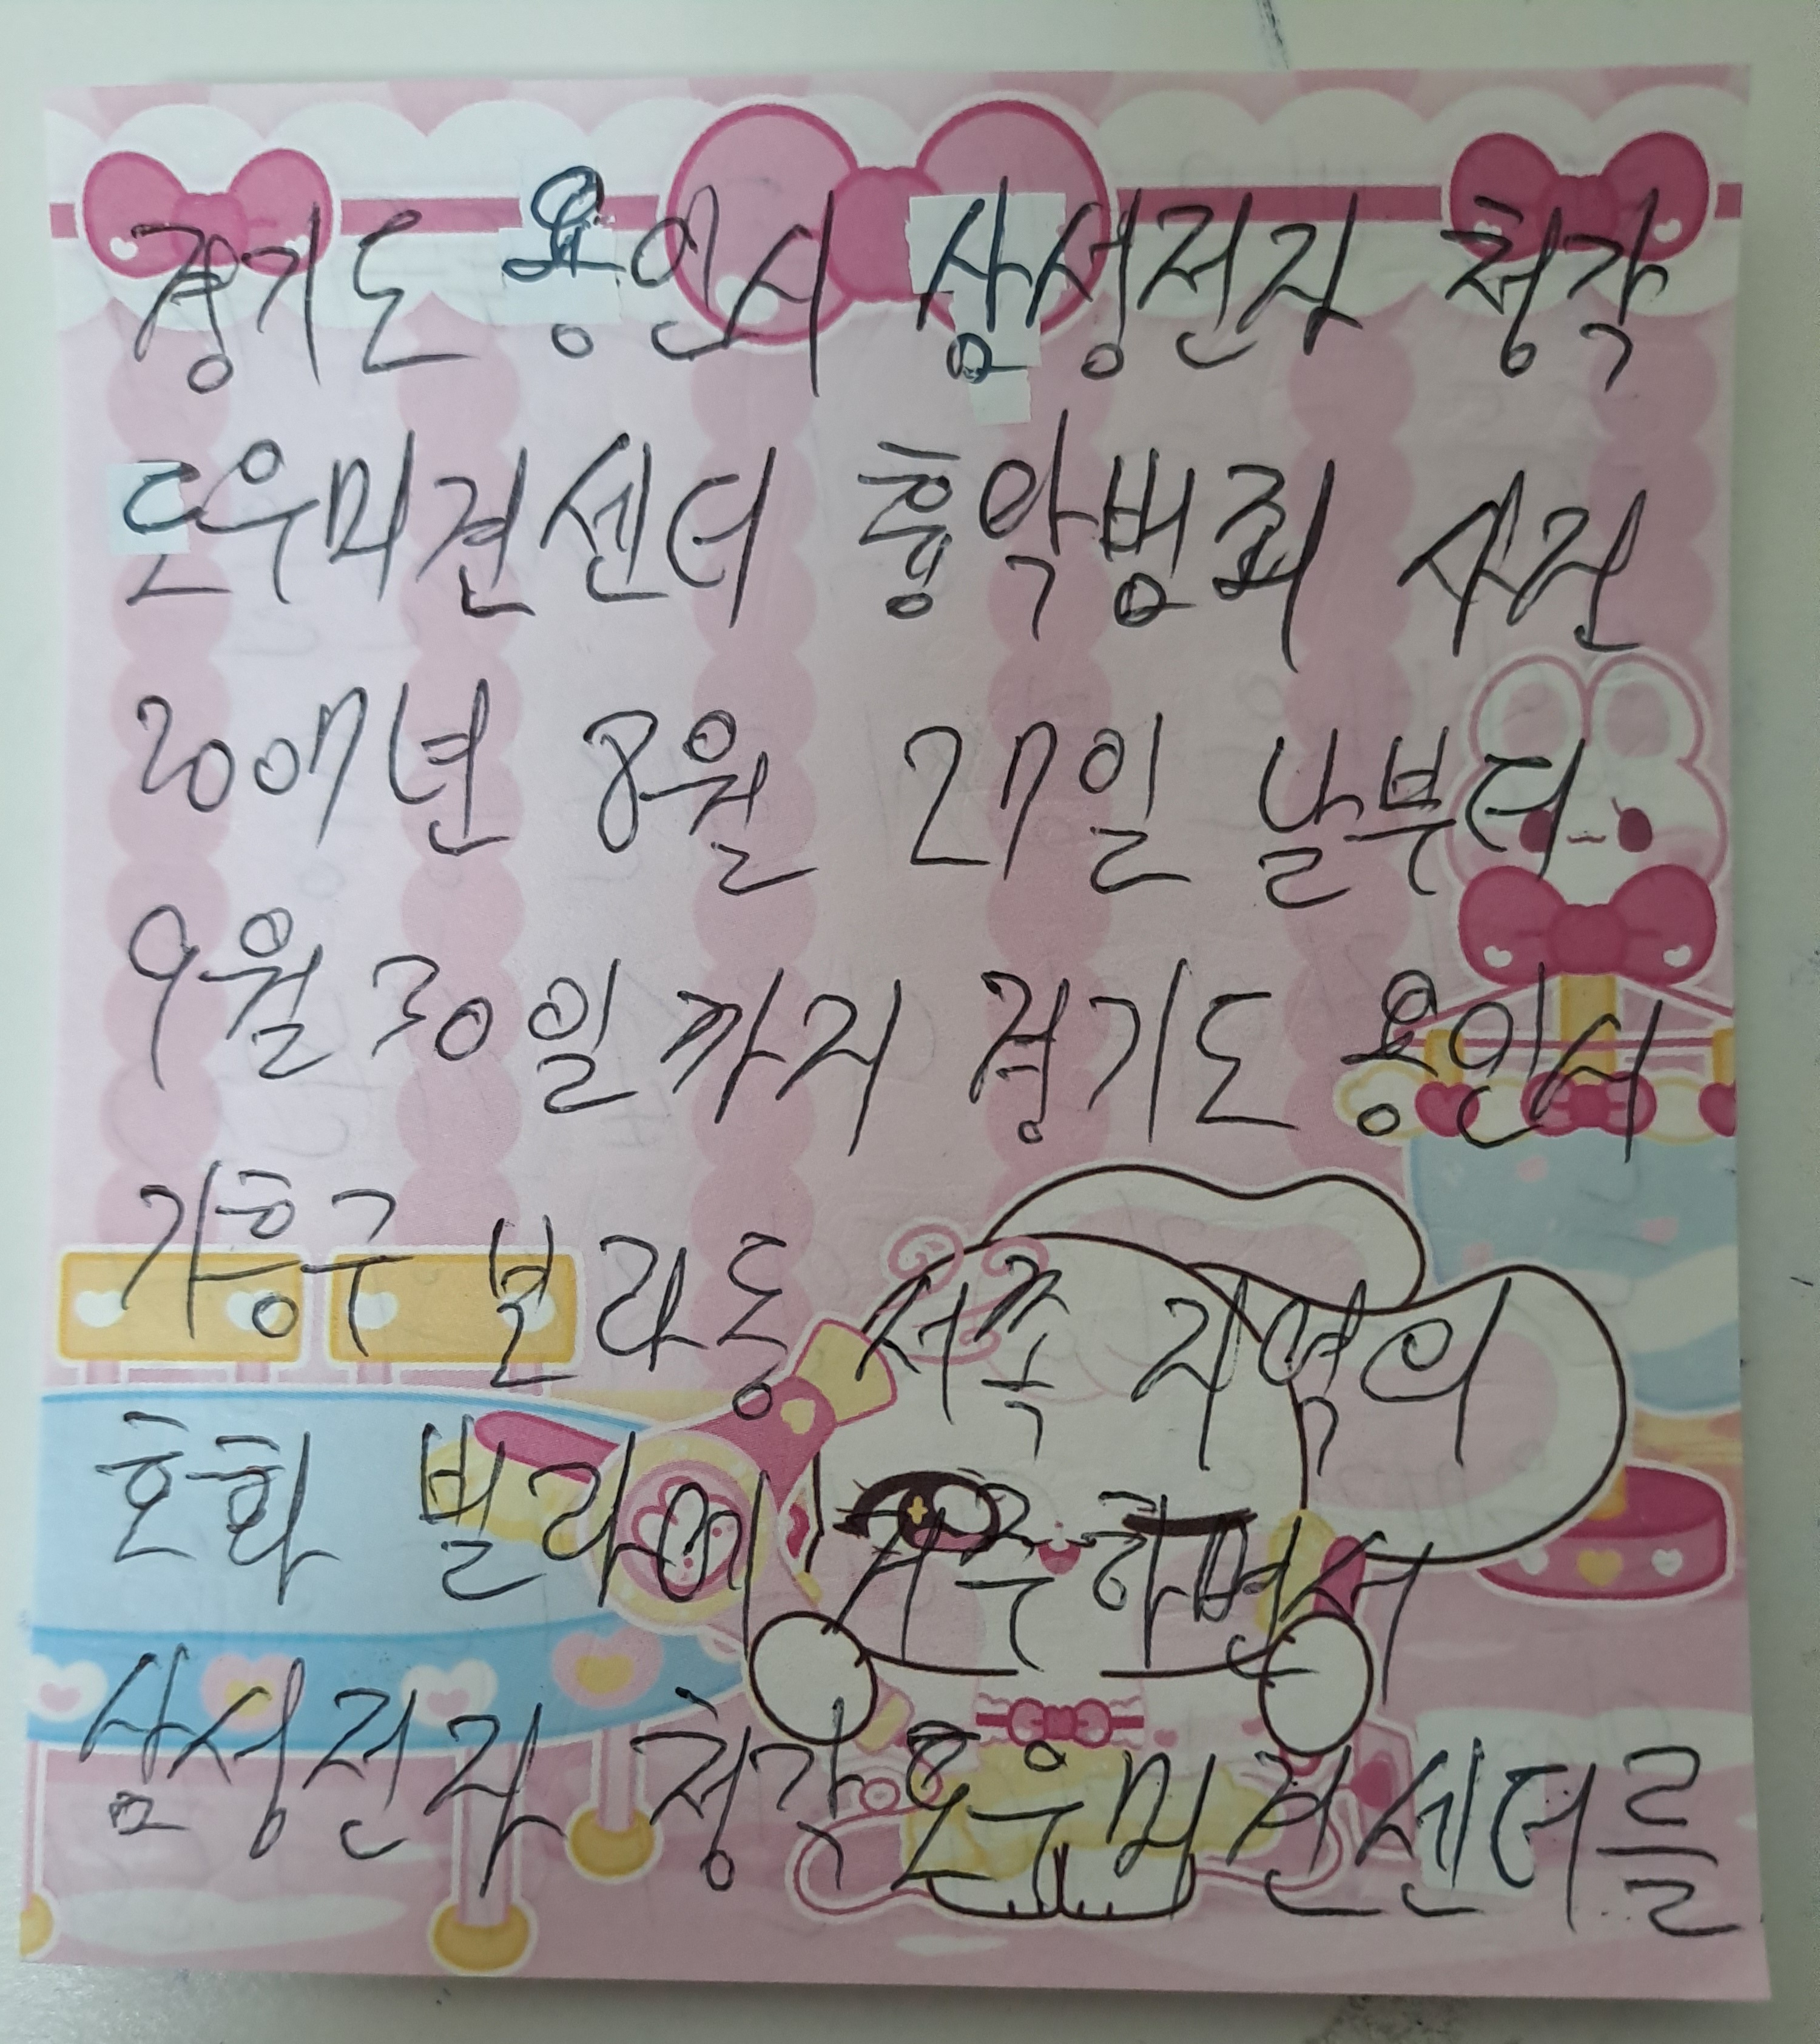 경기도 용인시 삼성전자 청각
도우미견센터 흉악범죄 사건
2007년 8월 27일 날부터
9월 30일까지 경기도 용인시
기흥구 보라동 서쪽 지역의
호화 빌라에 거주하면서
삼성전자 청각도우미견센터를